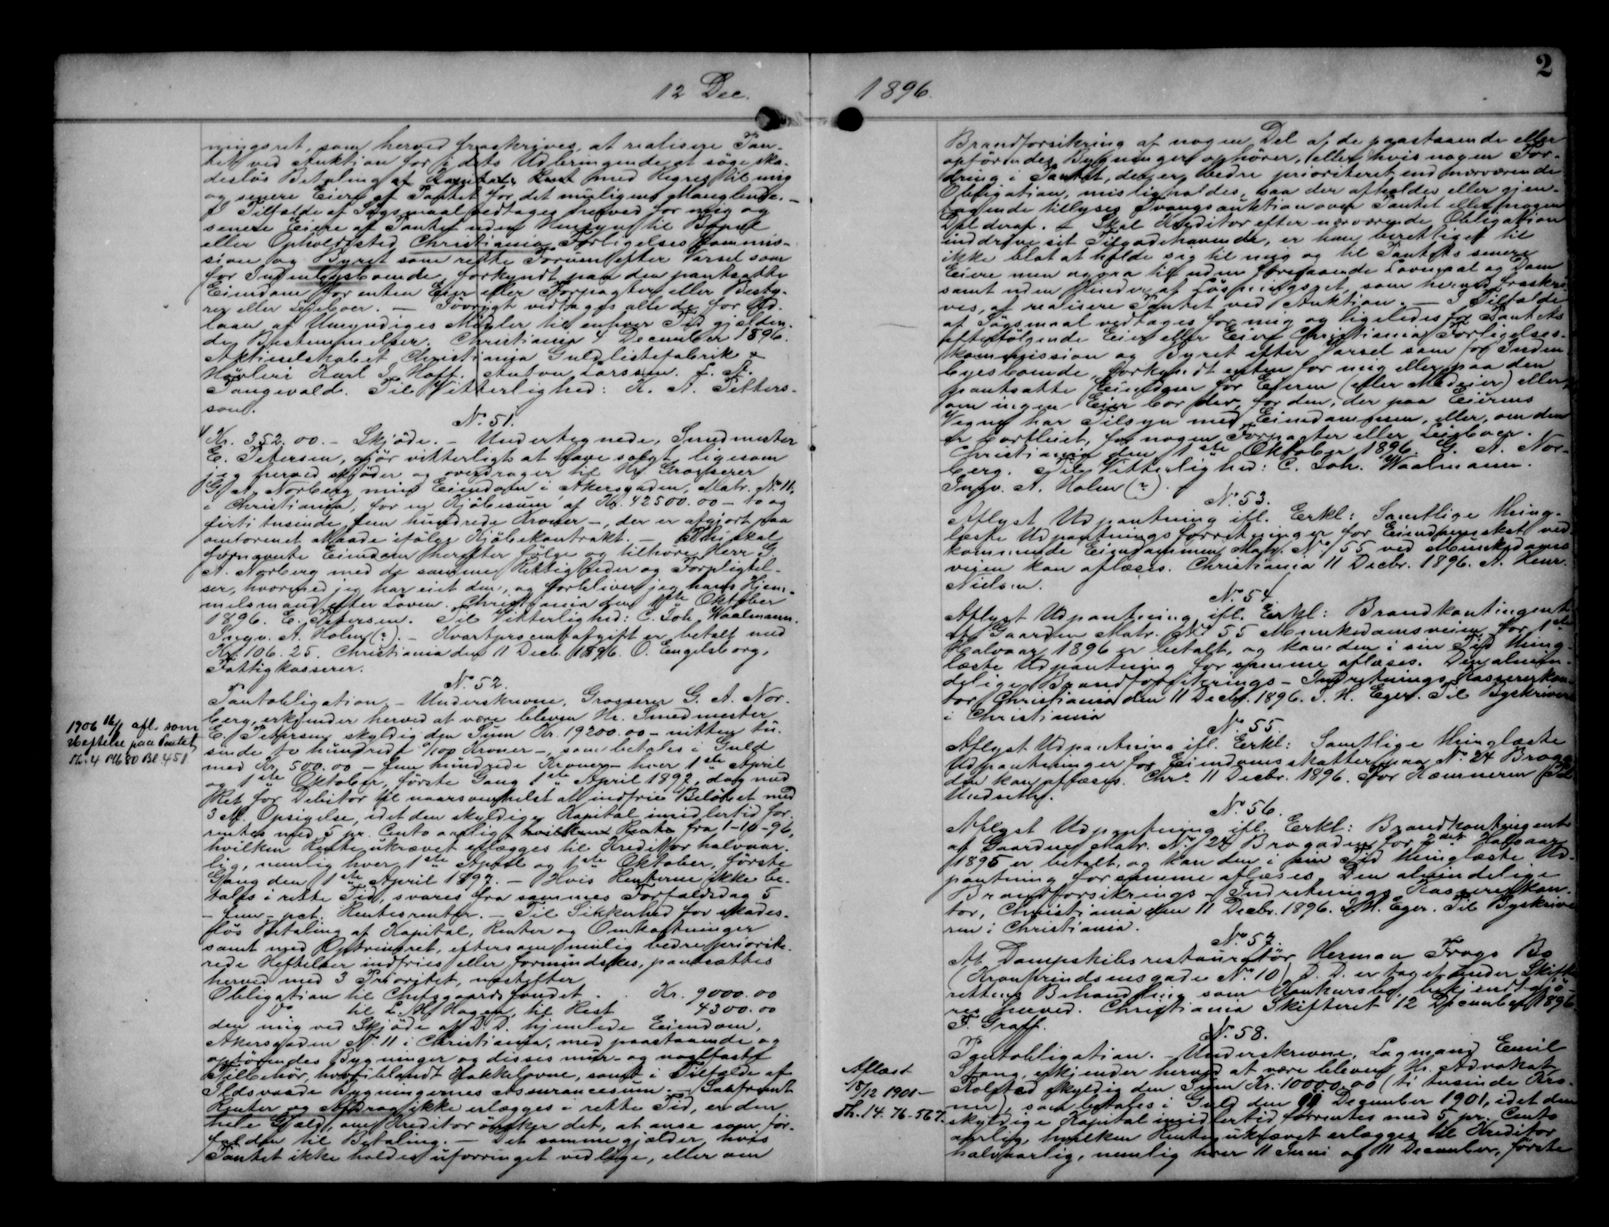 2
12 Dec.
1896.
ningsret, som herved fraskrives, at realisere Pan-
tet ved Auktion for i dets Udbringende at søge ska-
desløs Betaling af Kapital, Rent med Regres til mig
og senere Eiere af Pantet for det muligens Manglende. -
I Tilfælde af Søgsmaal vedtages herved for mig og
senere Eiere af Pantet uden Hensyn til Bopæl
eller Opholdssted Christiania Forligelses Kommis-
sion og Byret som rette Forum efter Varsel som
for Indenbysboende, forkyndt paa den pantsatte
Eiendom for enten Eier eller Forpagter eller Besty-
rer eller Leieboer. - Forøvrigt vedtages alle de for Ud-
laan af Umyndiges Midler til enhver Tid gjælden-
de Bestemmelser. Christiania 4 December 1896.
Aktieselskabet Christiania Guldlistefabrik &
Høvleri Karl J. Hoff. Anton Larssen. F. A.
Tangevald. Til Vitterlighed: K. A. Petters-
son.
No. 51.
Kr. 352.00. - Skjøde. - Undertegnede, Smedmester
E. Petersen, gjør vitterligt at have solgt ligesom
jeg herved skjøder og overdrager til Hr Grosserer
G. A. Norberg min Eiendom i Akersgaden, Matr. No. 11,
i Christiania, for en Kjøbesum af Kr. 42500.00 - to og
firti tusinde fem hundrede Kroner -, der er afgjort paa
omforenet Maade ifølge Kjøbekontrakt. - Thi skal
fornævnte Eiendom herefter følge og tilhøre Herr G.
A. Norberg med de samme Rettigheder og Forpligtel-
ser, hvormed jeg har eiet den, og forbliver jeg hans Hjem-
melsmand efter Loven. Christiania den 1ste Oktober
1896. E. Petersen. Til Vitterlighed: C. Joh. Waalmann.
Ingv. A. Holm (?). - Kvartprocentafgift er betalt med
Kr. 106.25. Christiania den 11 Decb. 1896. O. Engelsborg,
Fattigkasserer.
No. 52.
Pantobligation. - Underskrevne, Grosserer G. A. Nor-
berg, erkjender herved at være bleven Hr. Smedmester
E. Petersen skyldig den Sum Kr. 19200.00 - nitten tu-
sinde to hundrede 0/100 Kroner -, som betales i Guld
med Kr. 500.00 - fem hundrede Kroner - hver 1ste April
og 1ste Oktober, første Gang 1ste April 1892, dog med
Ret for Debitor til naarsomhelst at indfrie Beløbet med
3 M. Opsigelse, idet den skyldige Kapital imidlertid for-
rentes med 5 pr. Cento aarligt hvilken Rente fra 1-10-96,
hvilken Rente ukrævet erlægges til Kreditor halvaar-
lig, nemlig hver 1ste April og 1ste Oktober, første
Gang den 1ste April 1897. - Hvis Renterne ikke be-
tales i rette Tid, svares fra sammes Forfaldsdag 5
- fem - pct. Rentesrenter. - Til Sikkerhed for skades-
løs Betaling af Kapital, Renter og Omkostninger
samt med Optrinsret, eftersom mulig bedre priorite-
rede Heftelser indfries eller formindskes, pantsættes
herved med 3 Prioritet, næstefter
Obligation til Cheggaardsfondet Kr. 9000.00
" til L. H. Hagen, til Rest 4300.00
den mig ved Skjøde af D. D. hjemlede Eiendom,
Akersgaden No. 11 i Christiania, med paastaaende og
opførendes Bygninger og disses mur- og nagelfaste
Tilbehør, heriiblandt Kakkelovne, samt i Tilfælde af
Ildsvaade Bygningernes Assurancesum. - Saafremt
Renter og Afdrag ikke erlægges i rette Tid, er den
hele Gjæld, om Kreditor ønsker det, at anse som for-
falden til Betaling. - Det samme gjælder, hvis
Pantet ikke holdes uforringet vedlige, eller om
1906 16/1 afl. som
Heftelse paa Pantet
Th. 4 Pb 80 Bl. 451
Brandforsikring af nogen Del af de paastaaende eller
opførendes Bygninger ophører, eller hvis nogen For-
dring i Pantet, der er bedre prioriteret end nærværende
Obligation, misligholdes, saa der afholdes eller gjen-
tagende tillyses Tvangsauktion over Pantet eller nogen
Del deraf. - Skal Kreditor efter nærværende Obligation
inddrive sit Tilgodehavende, er han berettiget til
ikke blot at holde sig til mig og til Pantets senere
Eiere men ogsaa til uden foregaaende Lovmaal og Dom
samt uden Hinder af Løsningsret, som herved fraskri-
ves, at realisere Pantet ved Auktion. - I Tilfælde
af Søgsmaal vedtages for mig og ligeledes for Pantets
efterfølgende Eier eller Eiere Christiania Forligelses-
kommission og Byret efter Varsel som for Inden-
byesboende, forkyndt enten for mig eller paa den
pantsatte Eiendom for Eieren (eller Medeier) eller
om ingen Eier bor der, for den, der paa Eierens
Vegne har Tilsyn med Eiendommen, eller, om den
er bortleiet, for nogen Forpagter eller Leieboer. -
Christiania den 1ste Oktober 1896. G. A. Nor-
berg. Til Vitterlighed: C. Joh. Waalmann.
Ingv. A. Holm (?).
No. 53.
Aflyst Udpantning ifl. Erkl: Samtlige thing-
læste Udpantningsforretninger for Eiendomsskat ved-
kommende Eiendommen Matr. No. 55 ved Munkedams-
veien kan aflæses. Christiania 11 Decbr. 1896. A. Henr.
Nielsen.
No. 54.
Aflyst Udpantning ifl. Erkl: Brandkontingent
af Gaarden Matr. No. 55 Munkedamsveien for 1ste
Halvaar 1896 er betalt, og kan den i sin Tid thing-
læste Udpantning for samme aflæses. Den almin-
delige Brandforsikrings-Indretnings Kassererkon-
tor, Christiania den 11 Decbr. 1896. J. H. Eger. Til Byskriveren
i Christiania
No. 55.
Aflyst Udpantning ifl. Erkl: Samtlige thinglæste
Udpantninger for Eiendomsskatter paa No. 24 Broga-
den kan aflæses. Chra. 11 Decbr. 1896. For Kæmneren
Undseth.
No. 56.
Aflyst Udpantning ifl. Erkl: Brandkontingent
af Gaarden Matr. No. 24 Brogaden for 2det Halvaar
1895 er betalt, og kan den i sin Tid thinglæste Ud-
pantning for samme aflæses. Den almindelige
Brandforsikrings-Indretnings Kassererkon-
tor, Christiania den 11 Decbr. 1896. J. H. Eger. Til Byskrive
ren i Christiania.
No. 57.
At Dampskibsrestauratør Herman Frogs Bo
(Kronprindsensgade No. 10) D. D. er taget under Skifte-
rettens Behandling som Konkursbo, bekjendtgjø-
res herved. Christiania Skifteret 12 December 1896
F. Graff.
No. 58.
Pantobligation. - Underskrevne, Lagmand Emil
Stang, erkjender herved at være bleven Hr. Advokat
Rolsted skyldig den Sum Kr. 10000.00 (ti tusinde Kro-
ner), som betales i Guld den 11 December 1901, idet den
skyldige Kapital imidlertid forrentes med 5 pr. Cento
aarlig, hvilken Rente ukrævet erlægges til Kreditor
halvaarlig, nemlig hver 11 Juni og 11 December, første
Aflæst
15/12 1901 -
Th. 14. 76-567.